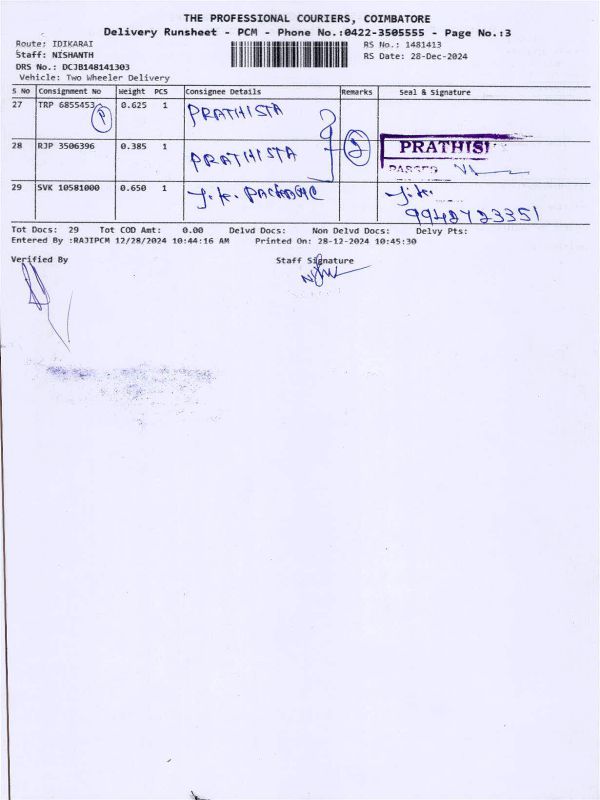 THE PROFESSIONAL COURIERS, COIMBATORE
Delivery Runsheet - PCM - Phone No.:0422-3505555 - Page No.:3
Route: IDIKARAI RS No.: 1481413
Staff: NISHANTH RS Date: 28-Dec-2024
DRS No.: DCJB148141303
Vehicle: Two Wheeler Delivery
S No Consignment No Weight PCS Consignee Details Remarks Seal & Signature
27 TRP 6855453 P 0.625 1 PRATHISTA
28 RJP 3506396 0.385 1 PRATHISTA 2 PRATHIS
PASSED
29 SVK 10581000 0.650 1 J.K. J.K.
9942723351
Tot Docs: 29 Tot COD Amt: 0.00 Delvd Docs: Non Delvd Docs: Delvy Pts:
Entered By :RAJIPCM 12/28/2024 10:44:16 AM Printed On: 28-12-2024 10:45:30
Verified By Staff Signature